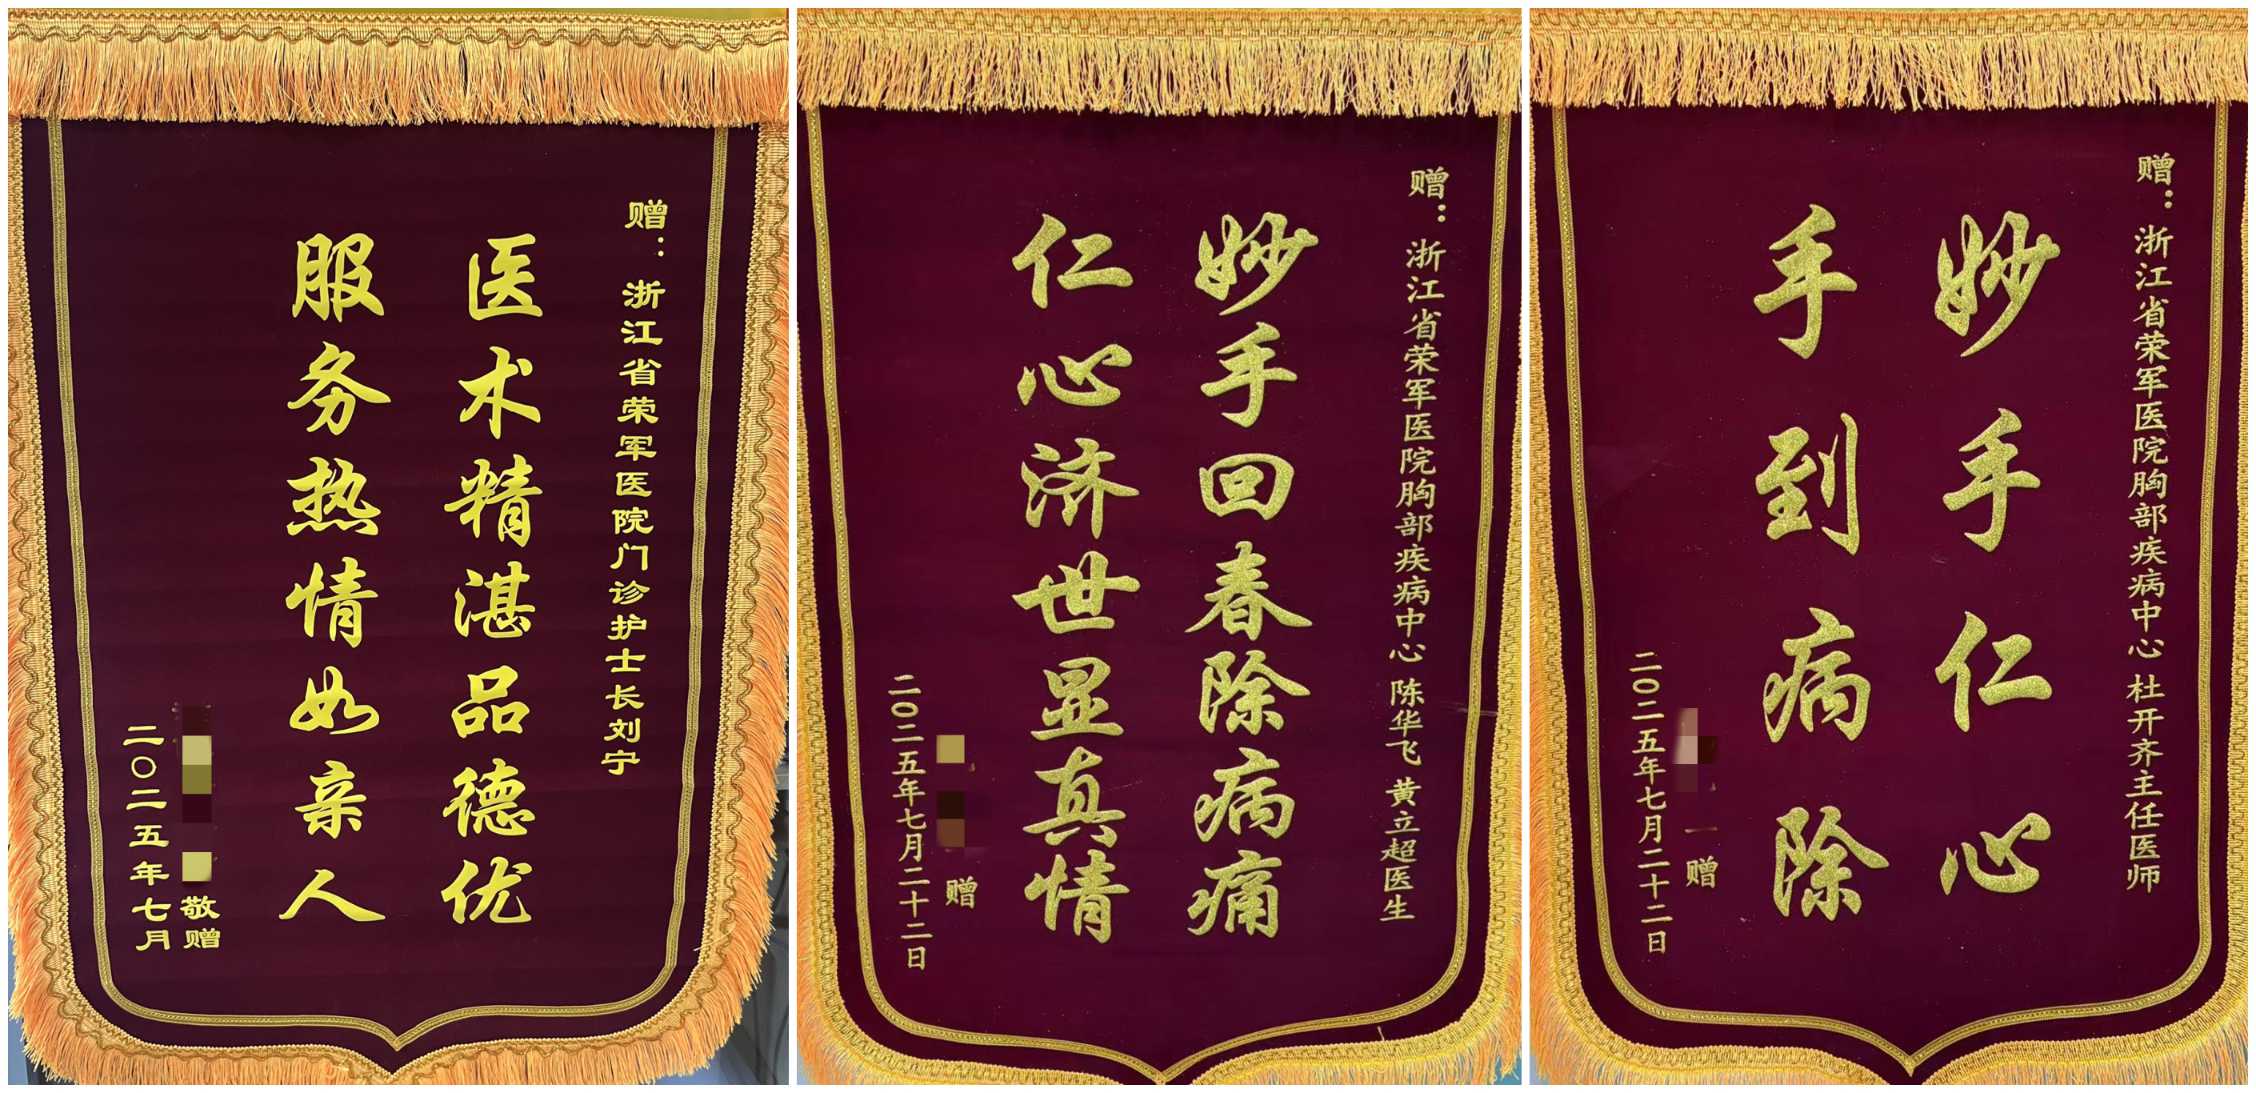 赠：浙江省荣军医院门诊护士长刘宁
医术精湛品德优
服务热情如亲人
敬赠
二〇二五年七月
赠：浙江省荣军医院胸部疾病中心 陈华飞 黄立超医生
妙手回春除病痛
仁心济世显真情
赠
二〇二五年七月二十二日
赠：浙江省荣军医院胸部疾病中心 杜开齐主任医师
妙手仁心
手到病除
赠
二〇二五年七月二十二日